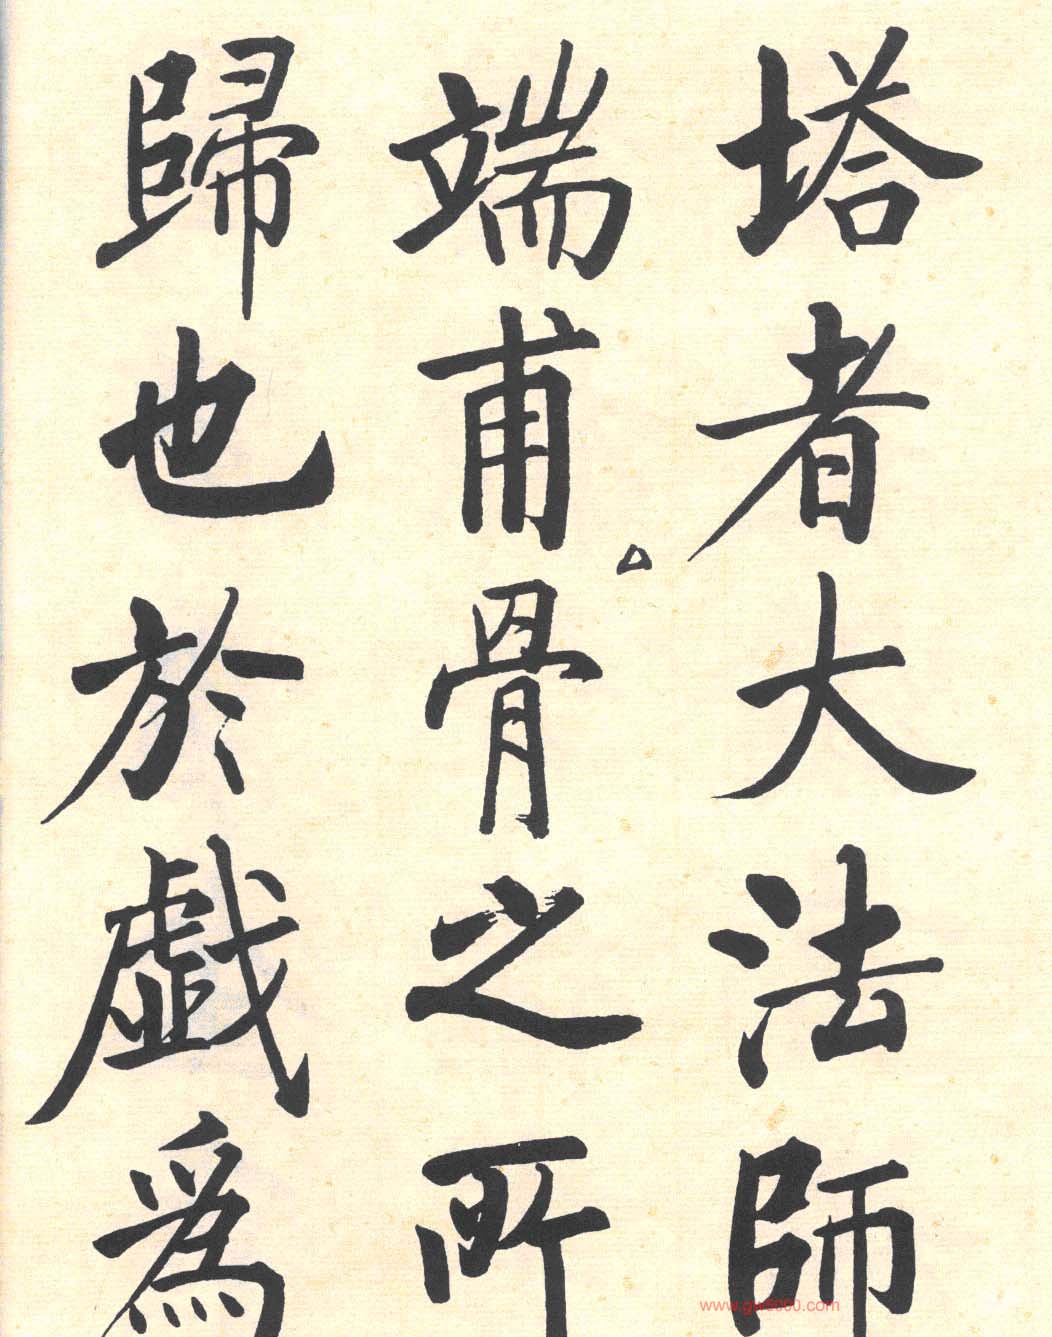 塔者大法師
端甫骨之所
歸也於戲為
www.gw8000.com